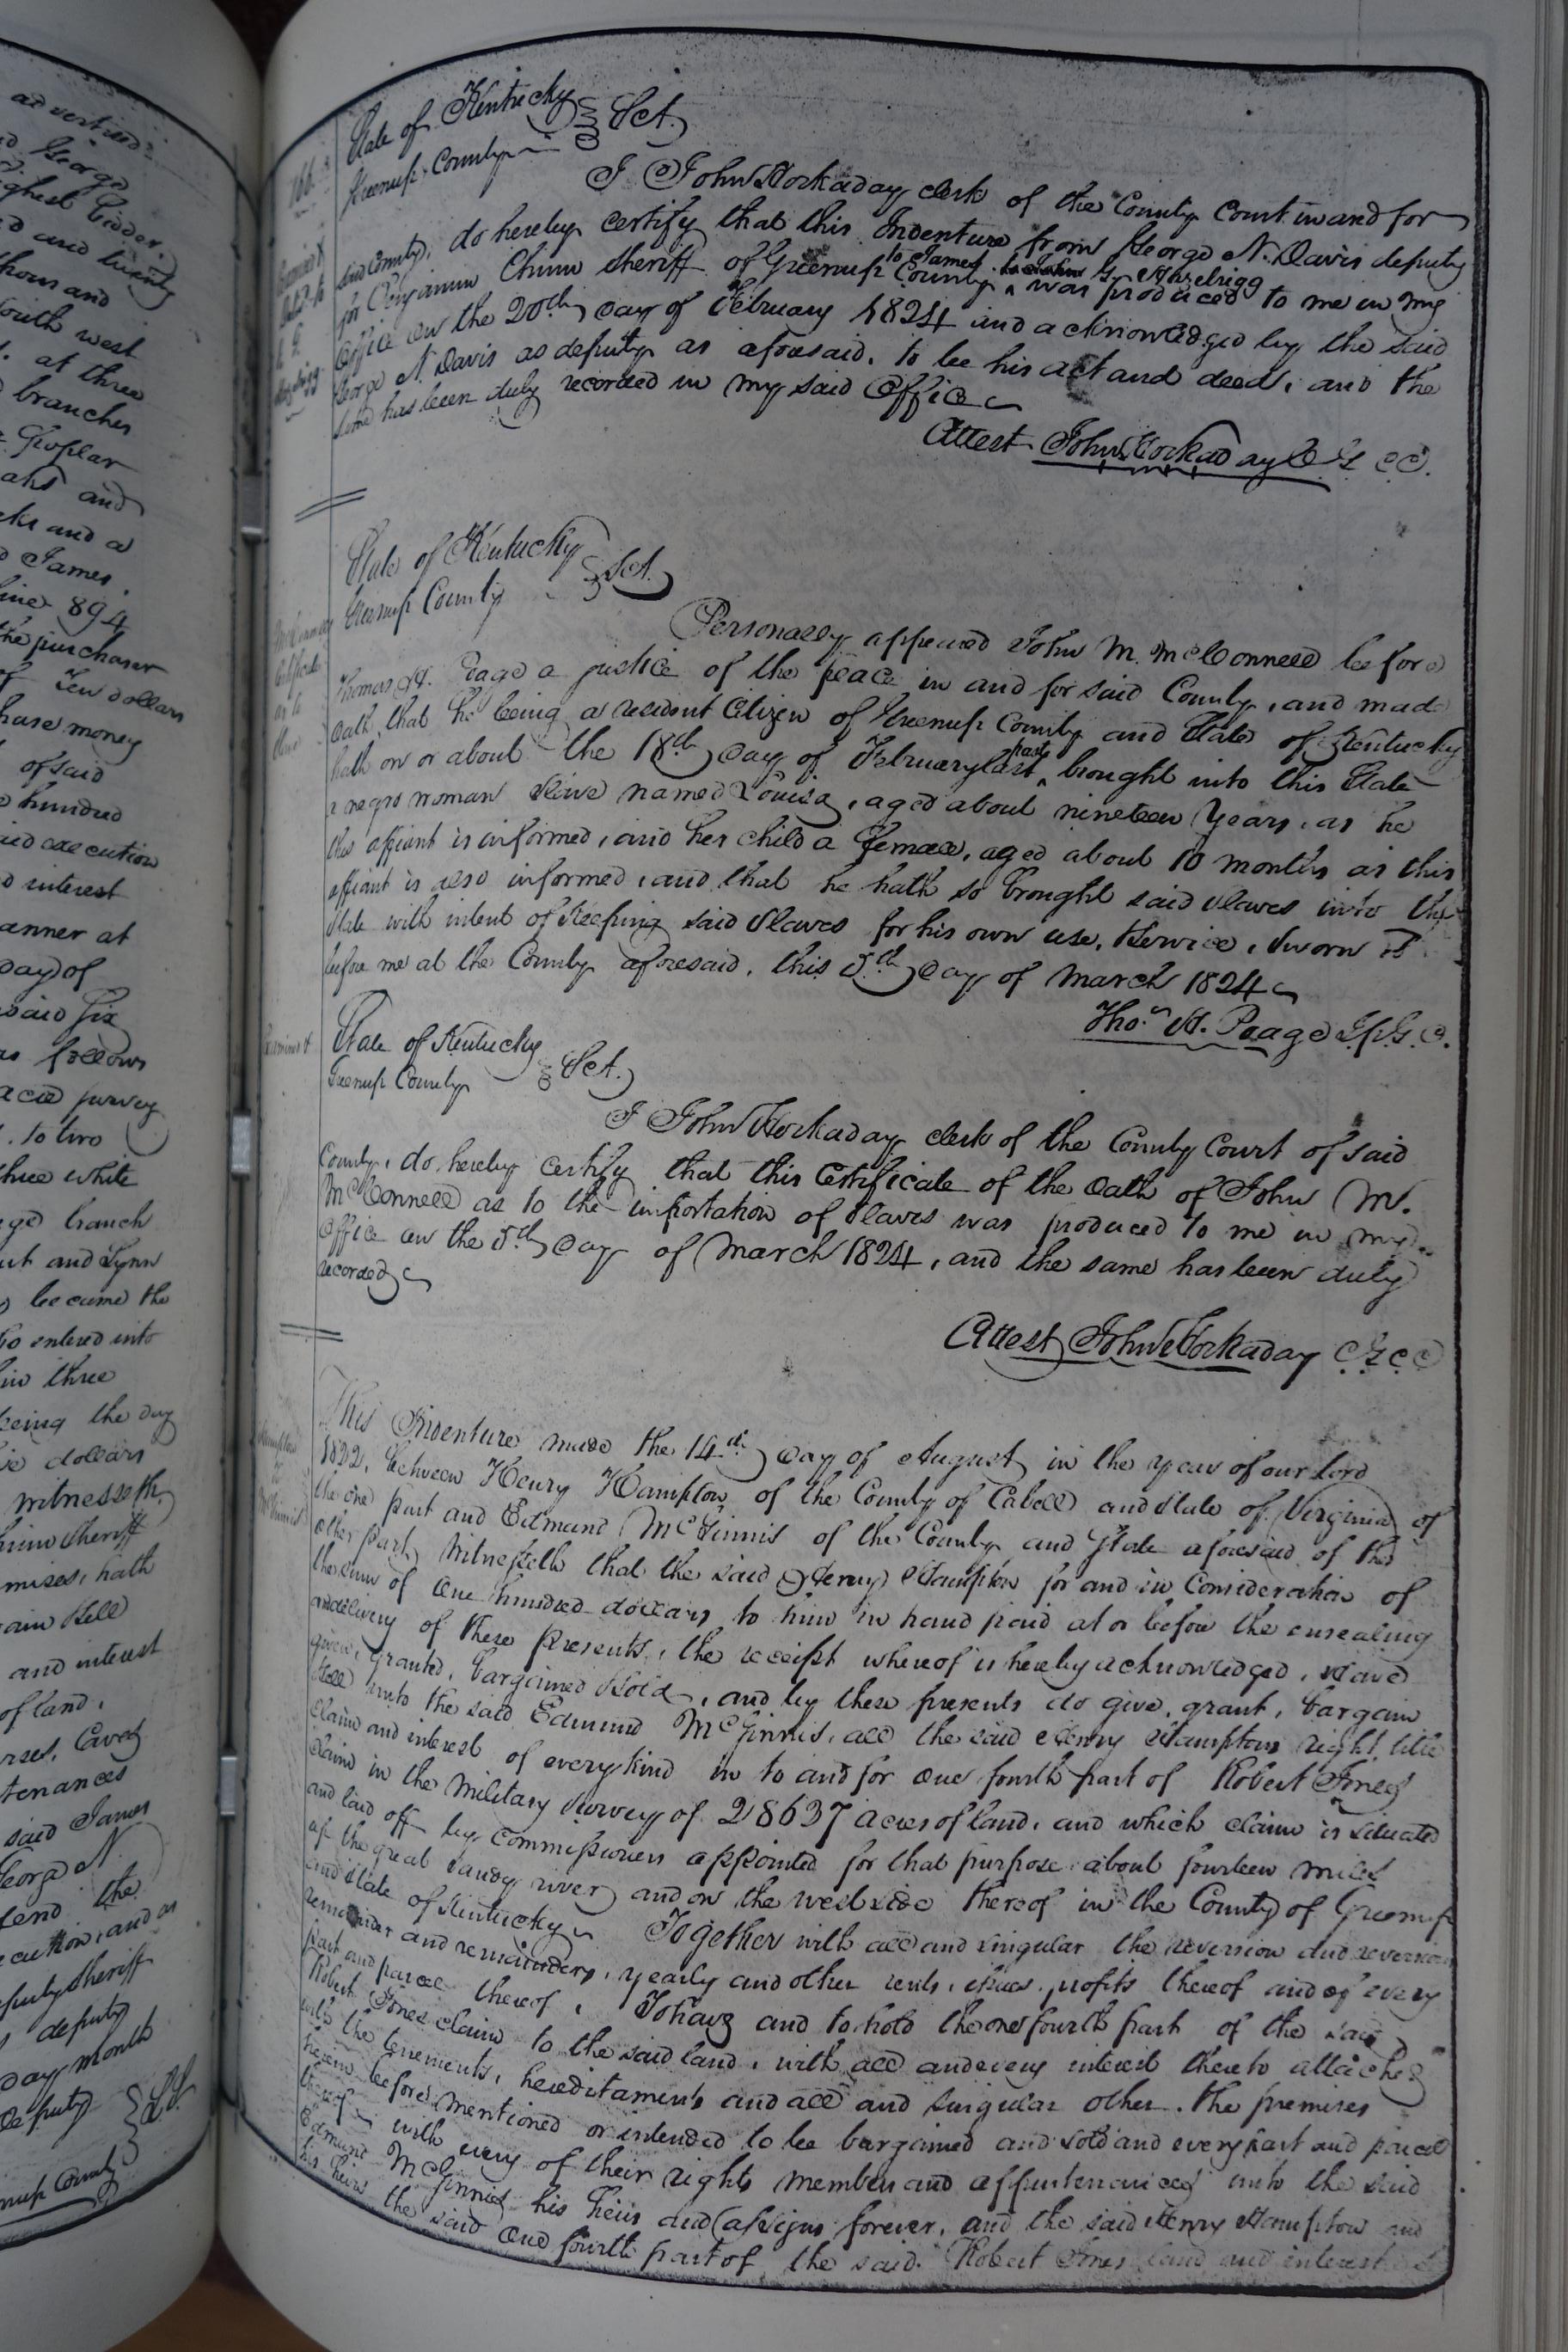 advertised
George
highest bidder
and twenty
thousand
South west
at three
branches
Poplar
and
and a
James
line 894
the purchaser
of Ten dollars
chase money
of said
hundred
said execution
interest
manner at
day of
said Six
as follows
acre survey
to two
three white
branch
and Lynn
became the
entered into
three
being the day
dollars
witnesseth
Chinn Sheriff
mises, hath
Sell
and interest
of land,
tenances
said James
George N.
the
execution, and as
deputy Sheriff
deputy
day month
deputy L.S.
Greenup County
166
Examined &
State of Kentucky
Greenup County Sct.
I John Hockaday clerk of the County Court in and for
said County, do hereby certify that this Indenture from George N. Davis deputy
for Benjamin Chinn Sheriff of Greenup County to James G. Hazelrigg was produced to me in my
office on the 20th day of February 1824 and acknowledged by the said
George N. Davis as deputy as aforesaid, to be his act and deed, and the
same has been duly recorded in my said office
Attest John Hockaday C G C C.
State of Kentucky
Greenup County Sct.
Personally appeared John M. McConnell before
Thomas H. Poage a justice of the peace in and for said County, and made
oath, that he being a resident Citizen of Greenup County and State of Kentucky
hath on or about the 18th day of February last past, brought into this State
a negro woman slave named Louisa, aged about nineteen years, as he
this affiant is informed, and her child a female, aged about 10 months as this
affiant is also informed, and that he hath so brought said slaves into this
State with intent of keeping said Slaves for his own use, & service, Sworn to
before me at the County aforesaid, this 5th day of March 1824
Thos. H. Poage J.P.G.C.
Examined
State of Kentucky
Greenup County Sct.
I John Hockaday clerk of the County Court of said
County, do hereby certify that this Certificate of the oath of John M.
McConnell as to the importation of slaves was produced to me in my
office on the 5th day of March 1824, and the same has been duly
recorded
Attest John Hockaday C G C C
Hampton
to
McGinnis
This Indenture made the 14th day of August in the year of our Lord
1822, between Henry Hampton of the County of Cabell and State of Virginia of
the one part and Edmund McGinnis of the County and State aforesaid of the
other part, Witnesseth that the said Henry Hampton for and in Consideration of
the sum of one hundred dollars to him in hand paid at or before the ensealing
and delivery of these presents, the receipt whereof is hereby acknowledged, have
given, granted, bargained & sold, and by these presents do give, grant, bargain
& sell unto the said Edmund McGinnis, all the said Henry Hamptons right, title
claim and interest of every kind in to and for one fourth part of Robert Jones
claim in the Military survey of 28637 acres of land, and which claim is situated
and laid off by commissioners appointed for that purpose about fourteen miles
up the great Sandy river and on the west side thereof in the County of Greenup
and State of Kentucky Together with all and singular the reversion and reversions
remainder and remainders, yearly and other rents, issues, profits thereof and of every
part and parcel thereof, To have and to hold the one fourth part of the said
Robert Jones claim to the said land, with all and every interest thereto attached
with the tenements, hereditaments and all and singular other the premises
herein before mentioned or intended to be bargained and sold and every part and parcel
thereof with every of their rights members and appurtenances unto the said
Edmund McGinnis his heirs and assigns forever, and the said Henry Hampton and
his heirs the said one fourth part of the said Robert Jones land and interest